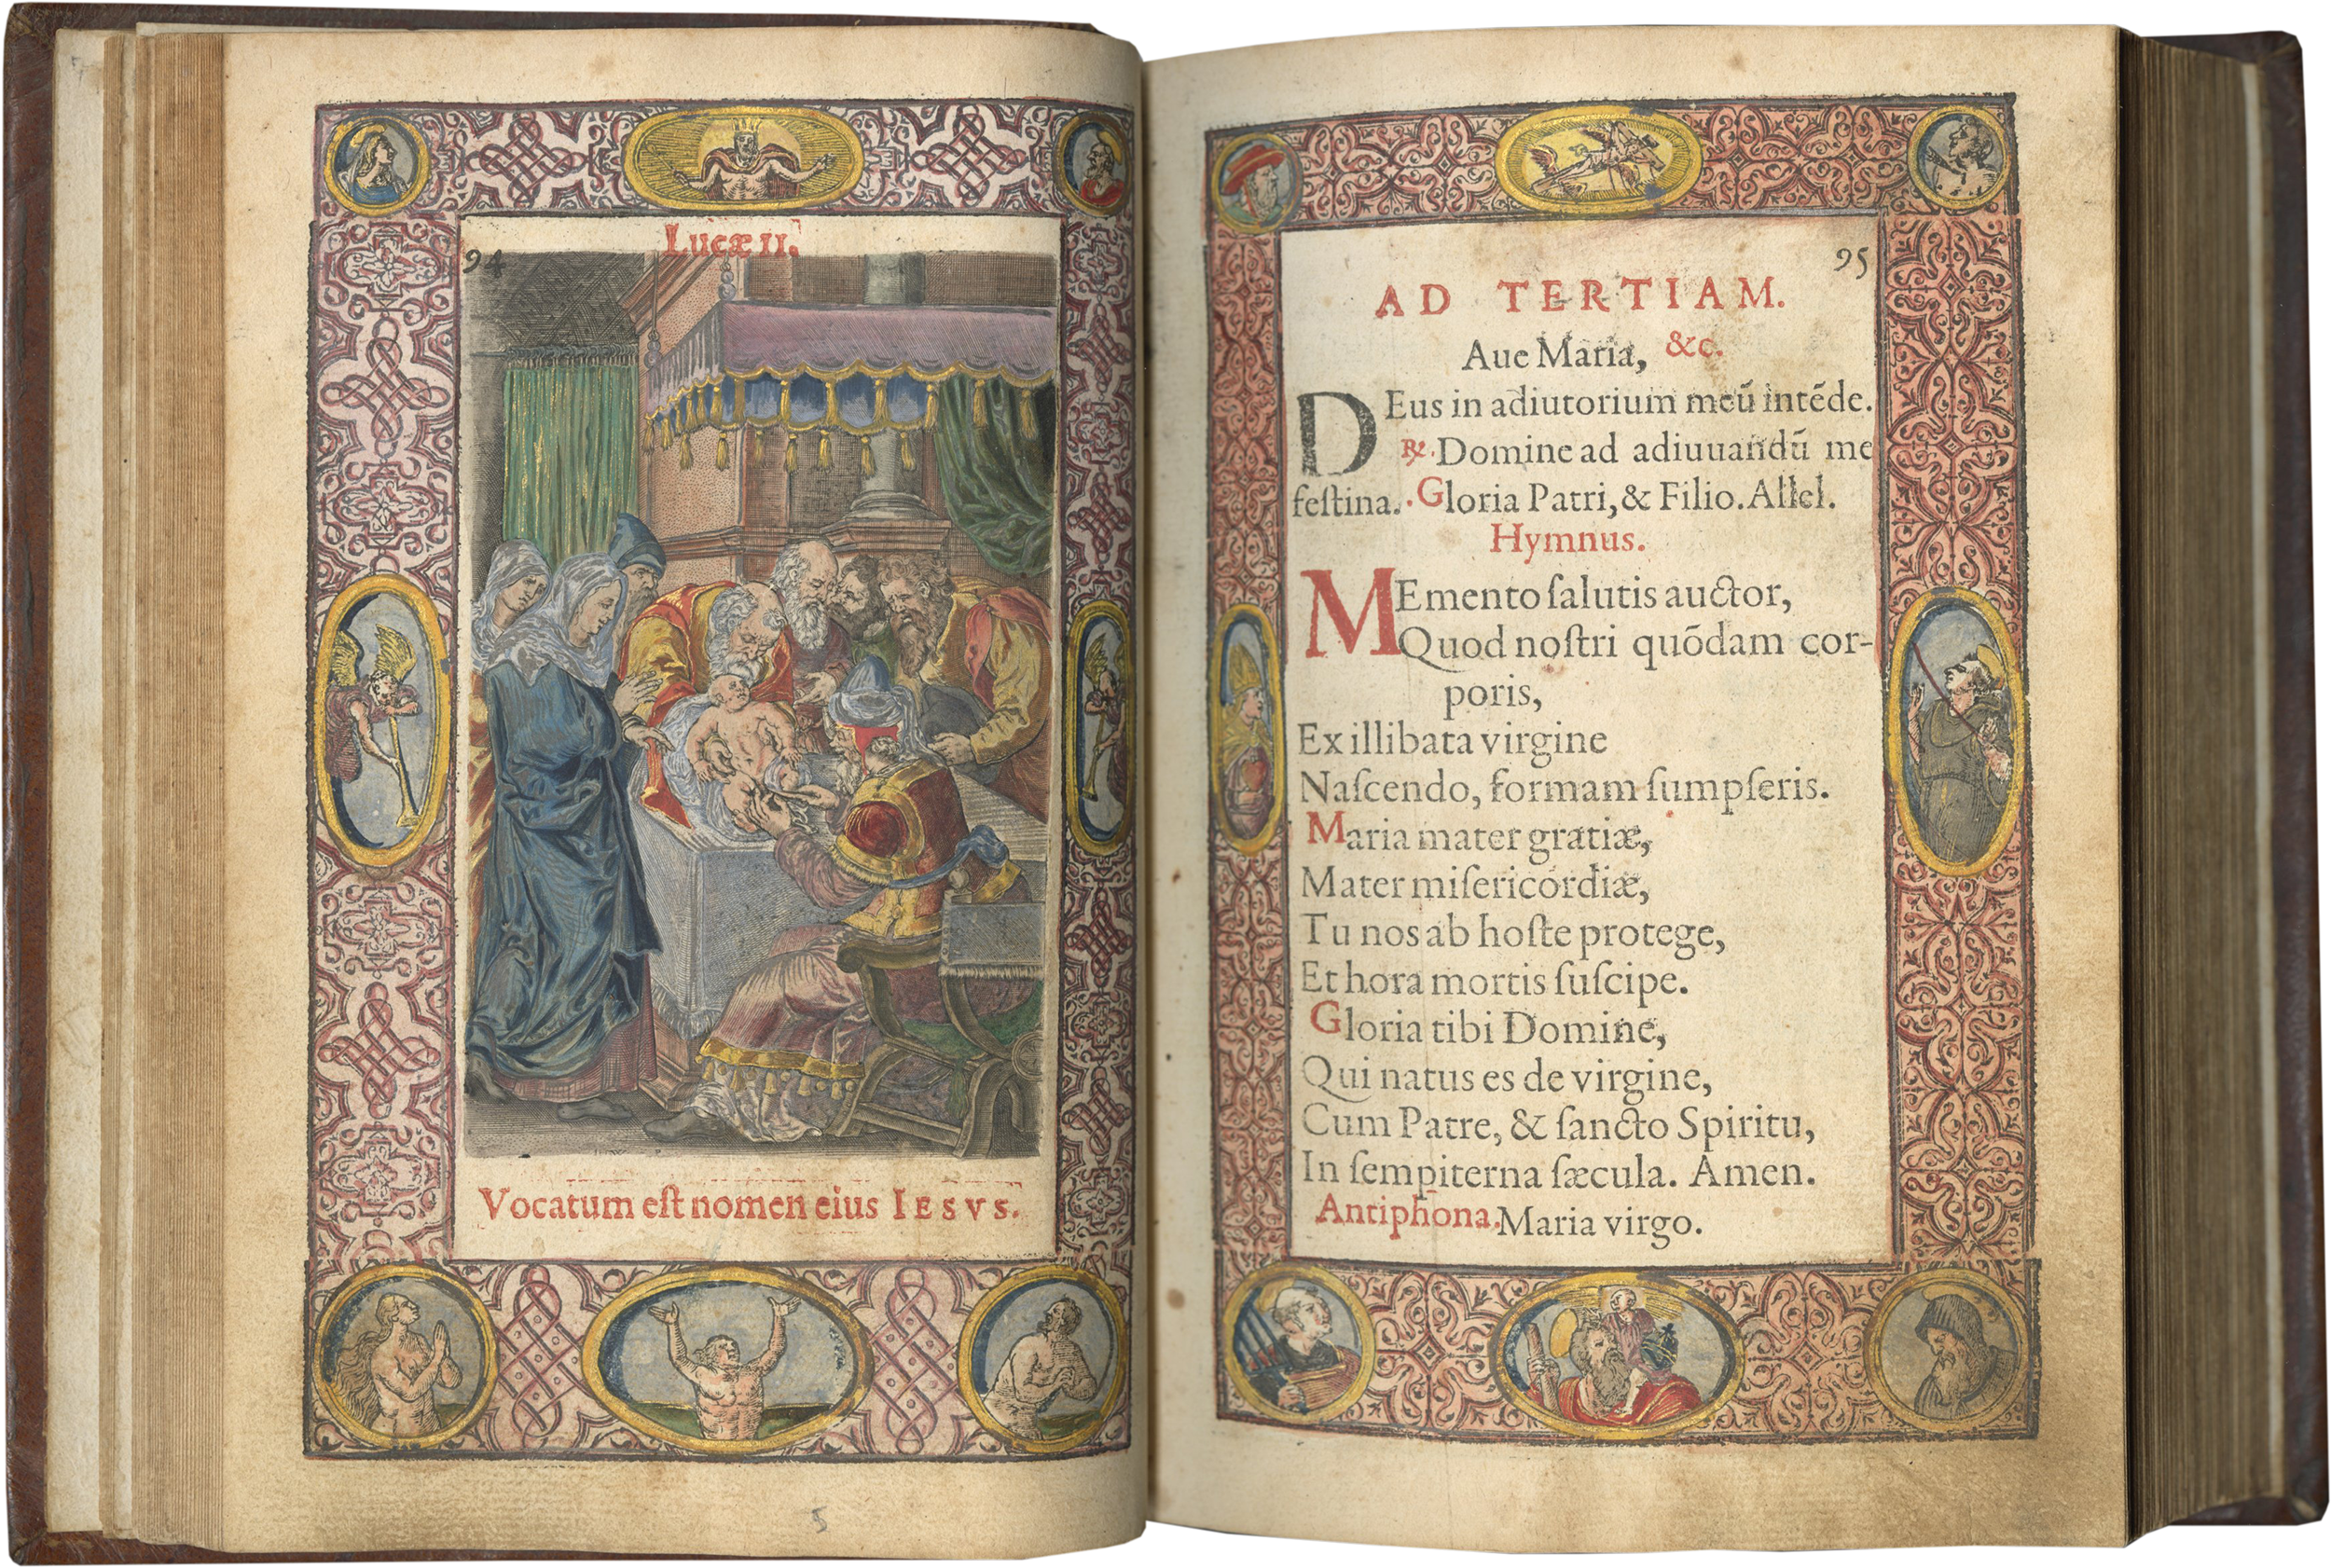 Lucæ II.
94
Vocatum eſt nomen eius IESVS.
5
95
AD TERTIAM.
Aue Maria, &c.
DEus in adiutorium meũ intẽde.
℞. Domine ad adiuuandũ me
feſtina. Gloria Patri, & Filio. Allel.
Hymnus.
MEmento ſalutis auctor,
Quod noſtri quõdam cor-
poris,
Ex illibata virgine
Naſcendo, formam ſumpſeris.
Maria mater gratiæ,
Mater miſericordiæ,
Tu nos ab hoſte protege,
Et hora mortis ſuſcipe.
Gloria tibi Domine,
Qui natus es de virgine,
Cum Patre, & ſancto Spiritu,
In ſempiterna ſæcula. Amen.
Antiphona. Maria virgo.